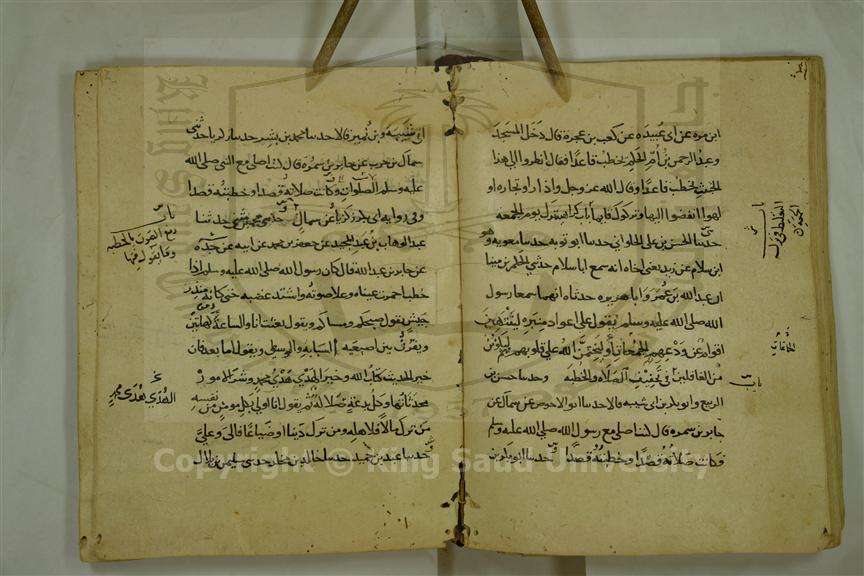 ابن مره عن ابى عبيده عن كعب بن عجرة قال دخل المسجد
وعبد الرحمن بن ام الحكم يخطب قاعدا فقال انظروا الى هذا
الخبيث يخطب قاعدا وقال الله عز وجل واذا راوا تجاره او
لهوا انفضوا اليها وتركوك قايما باب كراهية ترك يوم الجمعه
حدثنا الحسن بن على الحلوانى حدثنا ابو توبه حدثنا معويه وهو
ابن سلام عن زيد يعنى اخاه انه سمع ابا سلام حدثنى الحكم بن مينا
ان عبد الله بن عمر وابا هريره حدثاه انهما سمعا رسول
الله صلى الله عليه وسلم يقول على اعواد منبره لينتهين
اقوام عن ودعهم الجمعات او ليختمن الله على قلوبهم ثم ليكونن
من الغافلين فى تخفيف الصلاه والخطبه وحدثنا حسن بن
الربيع وابو بكر بن ابى شيبه قالا حدثنا ابو الاحوص عن سماك عن
جابر بن سمره قال كنت اصلى مع رسول الله صلى الله عليه وسلم
فكانت صلاته قصدا وخطبته قصدا حدثنا ابو بكر بن
باب
التغليظ فى ترك
الجمعة
الجمعات
باب
ابى شيبه وبن نمير قالا حدثنا محمد بن بشر حدثنا زكريا حدثنى
سماك بن حرب عن جابر بن سمرة قال كنت اصلى مع النبى صلى الله
عليه وسلم الصلوات وكانت صلاته قصدا وخطبته قصدا
وفى روايه ابى بكر زكريا عن سماك حدثنى محمد بن مثنى حدثنا
عبد الوهاب بن عبد المجيد عن جعفر بن محمد عن ابيه عن
عن جابر بن عبد الله قال كان رسول الله صلى الله عليه وسلم اذا
خطب احمرت عيناه وعلا صوته واشتد غضبه حتى كانه منذر
جيش يقول صبحكم ومساكم ويقول بعثت انا والساعة كهاتين
ويقرن بين اصبعيه السبابه والوسطى ويقول اما بعد فان
خير الحديث كتاب الله وخير الهدى هدى محمد وشر الامور
محدثاتها وكل بدعة ضلالة ثم يقول انا اولى بكل مومن من نفسه
من ترك مالا فلاهله ومن ترك دينا او ضياعا فالى وعلى
حدثنا عبد بن حميد حدثنا خالد بن مخلد حدثنى سليمن بن بلال
باب
رفع الصوت بالخطبه
وما يقول فيها
الهدى هدى محمد
Copyright © King Saud University